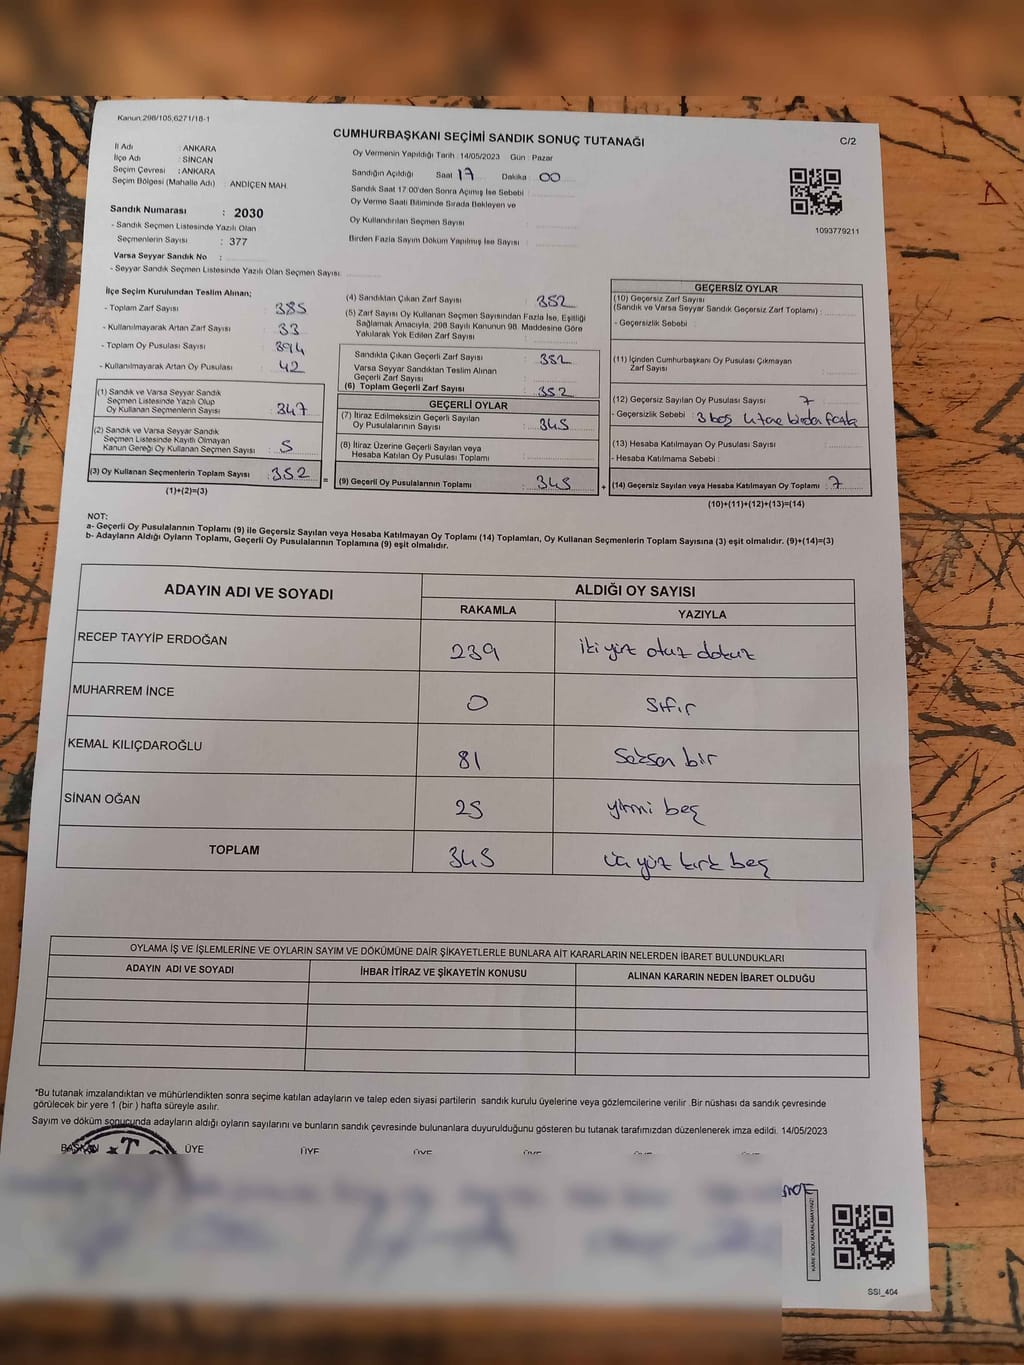 Kanun:298/105,6271/18-1
CUMHURBAŞKANI SEÇİMİ SANDIK SONUÇ TUTANAĞI
C/2
İl Adı : ANKARA
İlçe Adı : SİNCAN
Seçim Çevresi : ANKARA
Seçim Bölgesi (Mahalle Adı) : ANDİÇEN MAH.
Sandık Numarası : 2030
- Sandık Seçmen Listesinde Yazılı Olan
Seçmenlerin Sayısı : 377
Varsa Seyyar Sandık No :
- Seyyar Sandık Seçmen Listesinde Yazılı Olan Seçmen Sayısı:
Oy Vermenin Yapıldığı Tarih : 14/05/2023 Gün : Pazar
Sandığın Açıldığı Saat 17 Dakika : 00
Sandık Saat 17:00'den Sonra Açımış İse Sebebi :
Oy Verme Saati Bitiminde Sırada Bekleyen ve
Oy Kullandırılan Seçmen Sayısı :
Birden Fazla Sayım Döküm Yapılmış İse Sayısı :
1093779211
İlçe Seçim Kurulundan Teslim Alınan;
- Toplam Zarf Sayısı : 385
- Kullanılmayarak Artan Zarf Sayısı : 33
- Toplam Oy Pusulası Sayısı : 394
- Kullanılmayarak Artan Oy Pusulası : 42
(1) Sandık ve Varsa Seyyar Sandık
Seçmen Listesinde Yazılı Olup
Oy Kullanan Seçmenlerin Sayısı : 347
(2) Sandık ve Varsa Seyyar Sandık
Seçmen Listesinde Kayıtlı Olmayan
Kanun Gereği Oy Kullanan Seçmen Sayısı : 5
(3) Oy Kullanan Seçmenlerin Toplam Sayısı : 352
(1)+(2)=(3)
(4) Sandıktan Çıkan Zarf Sayısı : 352
(5) Zarf Sayısı Oy Kullanan Seçmen Sayısından Fazla İse, Eşitliği
Sağlamak Amacıyla, 298 Sayılı Kanunun 98. Maddesine Göre
Yakılarak Yok Edilen Zarf Sayısı :
Sandıkta Çıkan Geçerli Zarf Sayısı : 352
Varsa Seyyar Sandıktan Teslim Alınan
Geçerli Zarf Sayısı :
(6) Toplam Geçerli Zarf Sayısı : 352
GEÇERLİ OYLAR
(7) İtiraz Edilmeksizin Geçerli Sayılan
Oy Pusulalarının Sayısı : 345
(8) İtiraz Üzerine Geçerli Sayılan veya
Hesaba Katılan Oy Pusulası Toplamı :
= (9) Geçerli Oy Pusulalarının Toplamı : 345
GEÇERSİZ OYLAR
(10) Geçersiz Zarf Sayısı
(Sandık ve Varsa Seyyar Sandık Geçersiz Zarf Toplamı) :
- Geçersizlik Sebebi :
(11) İçinden Cumhurbaşkanı Oy Pusulası Çıkmayan
Zarf Sayısı :
(12) Geçersiz Sayılan Oy Pusulası Sayısı : 7
- Geçersizlik Sebebi : 3 boş 4 tane birden fazla
(13) Hesaba Katılmayan Oy Pusulası Sayısı :
- Hesaba Katılmama Sebebi :
+ (14) Geçersiz Sayılan veya Hesaba Katılmayan Oy Toplamı : 7
(10)+(11)+(12)+(13)=(14)
NOT:
a- Geçerli Oy Pusulalarının Toplamı (9) ile Geçersiz Sayılan veya Hesaba Katılmayan Oy Toplamı (14) Toplamları, Oy Kullanan Seçmenlerin Toplam Sayısına (3) eşit olmalıdır. (9)+(14)=(3)
b- Adayların Aldığı Oyların Toplamı, Geçerli Oy Pusulalarının Toplamına (9) eşit olmalıdır.
ADAYIN ADI VE SOYADI
ALDIĞI OY SAYISI
RAKAMLA YAZIYLA
RECEP TAYYİP ERDOĞAN 239 iki yüz otuz dokuz
MUHARREM İNCE 0 sıfır
KEMAL KILIÇDAROĞLU 81 seksen bir
SİNAN OĞAN 25 yirmi beş
TOPLAM 345 üç yüz kırk beş
OYLAMA İŞ VE İŞLEMLERİNE VE OYLARIN SAYIM VE DÖKÜMÜNE DAİR ŞİKAYETLERLE BUNLARA AİT KARARLARIN NELERDEN İBARET BULUNDUKLARI
ADAYIN ADI VE SOYADI İHBAR İTİRAZ VE ŞİKAYETİN KONUSU ALINAN KARARIN NEDEN İBARET OLDUĞU
*Bu tutanak imzalandıktan ve mühürlendikten sonra seçime katılan adayların ve talep eden siyasi partilerin sandık kurulu üyelerine veya gözlemcilerine verilir .Bir nüshası da sandık çevresinde
görülecek bir yere 1 (bir ) hafta süreyle asılır.
Sayım ve döküm sonucunda adayların aldığı oyların sayılarını ve bunların sandık çevresinde bulunanlara duyurulduğunu gösteren bu tutanak tarafımızdan düzenlenerek imza edildi. 14/05/2023
BAŞKAN ÜYE ÜYE ÜYE ÜYE
KARE KODU KARALAMAYINIZ!
SSI_404